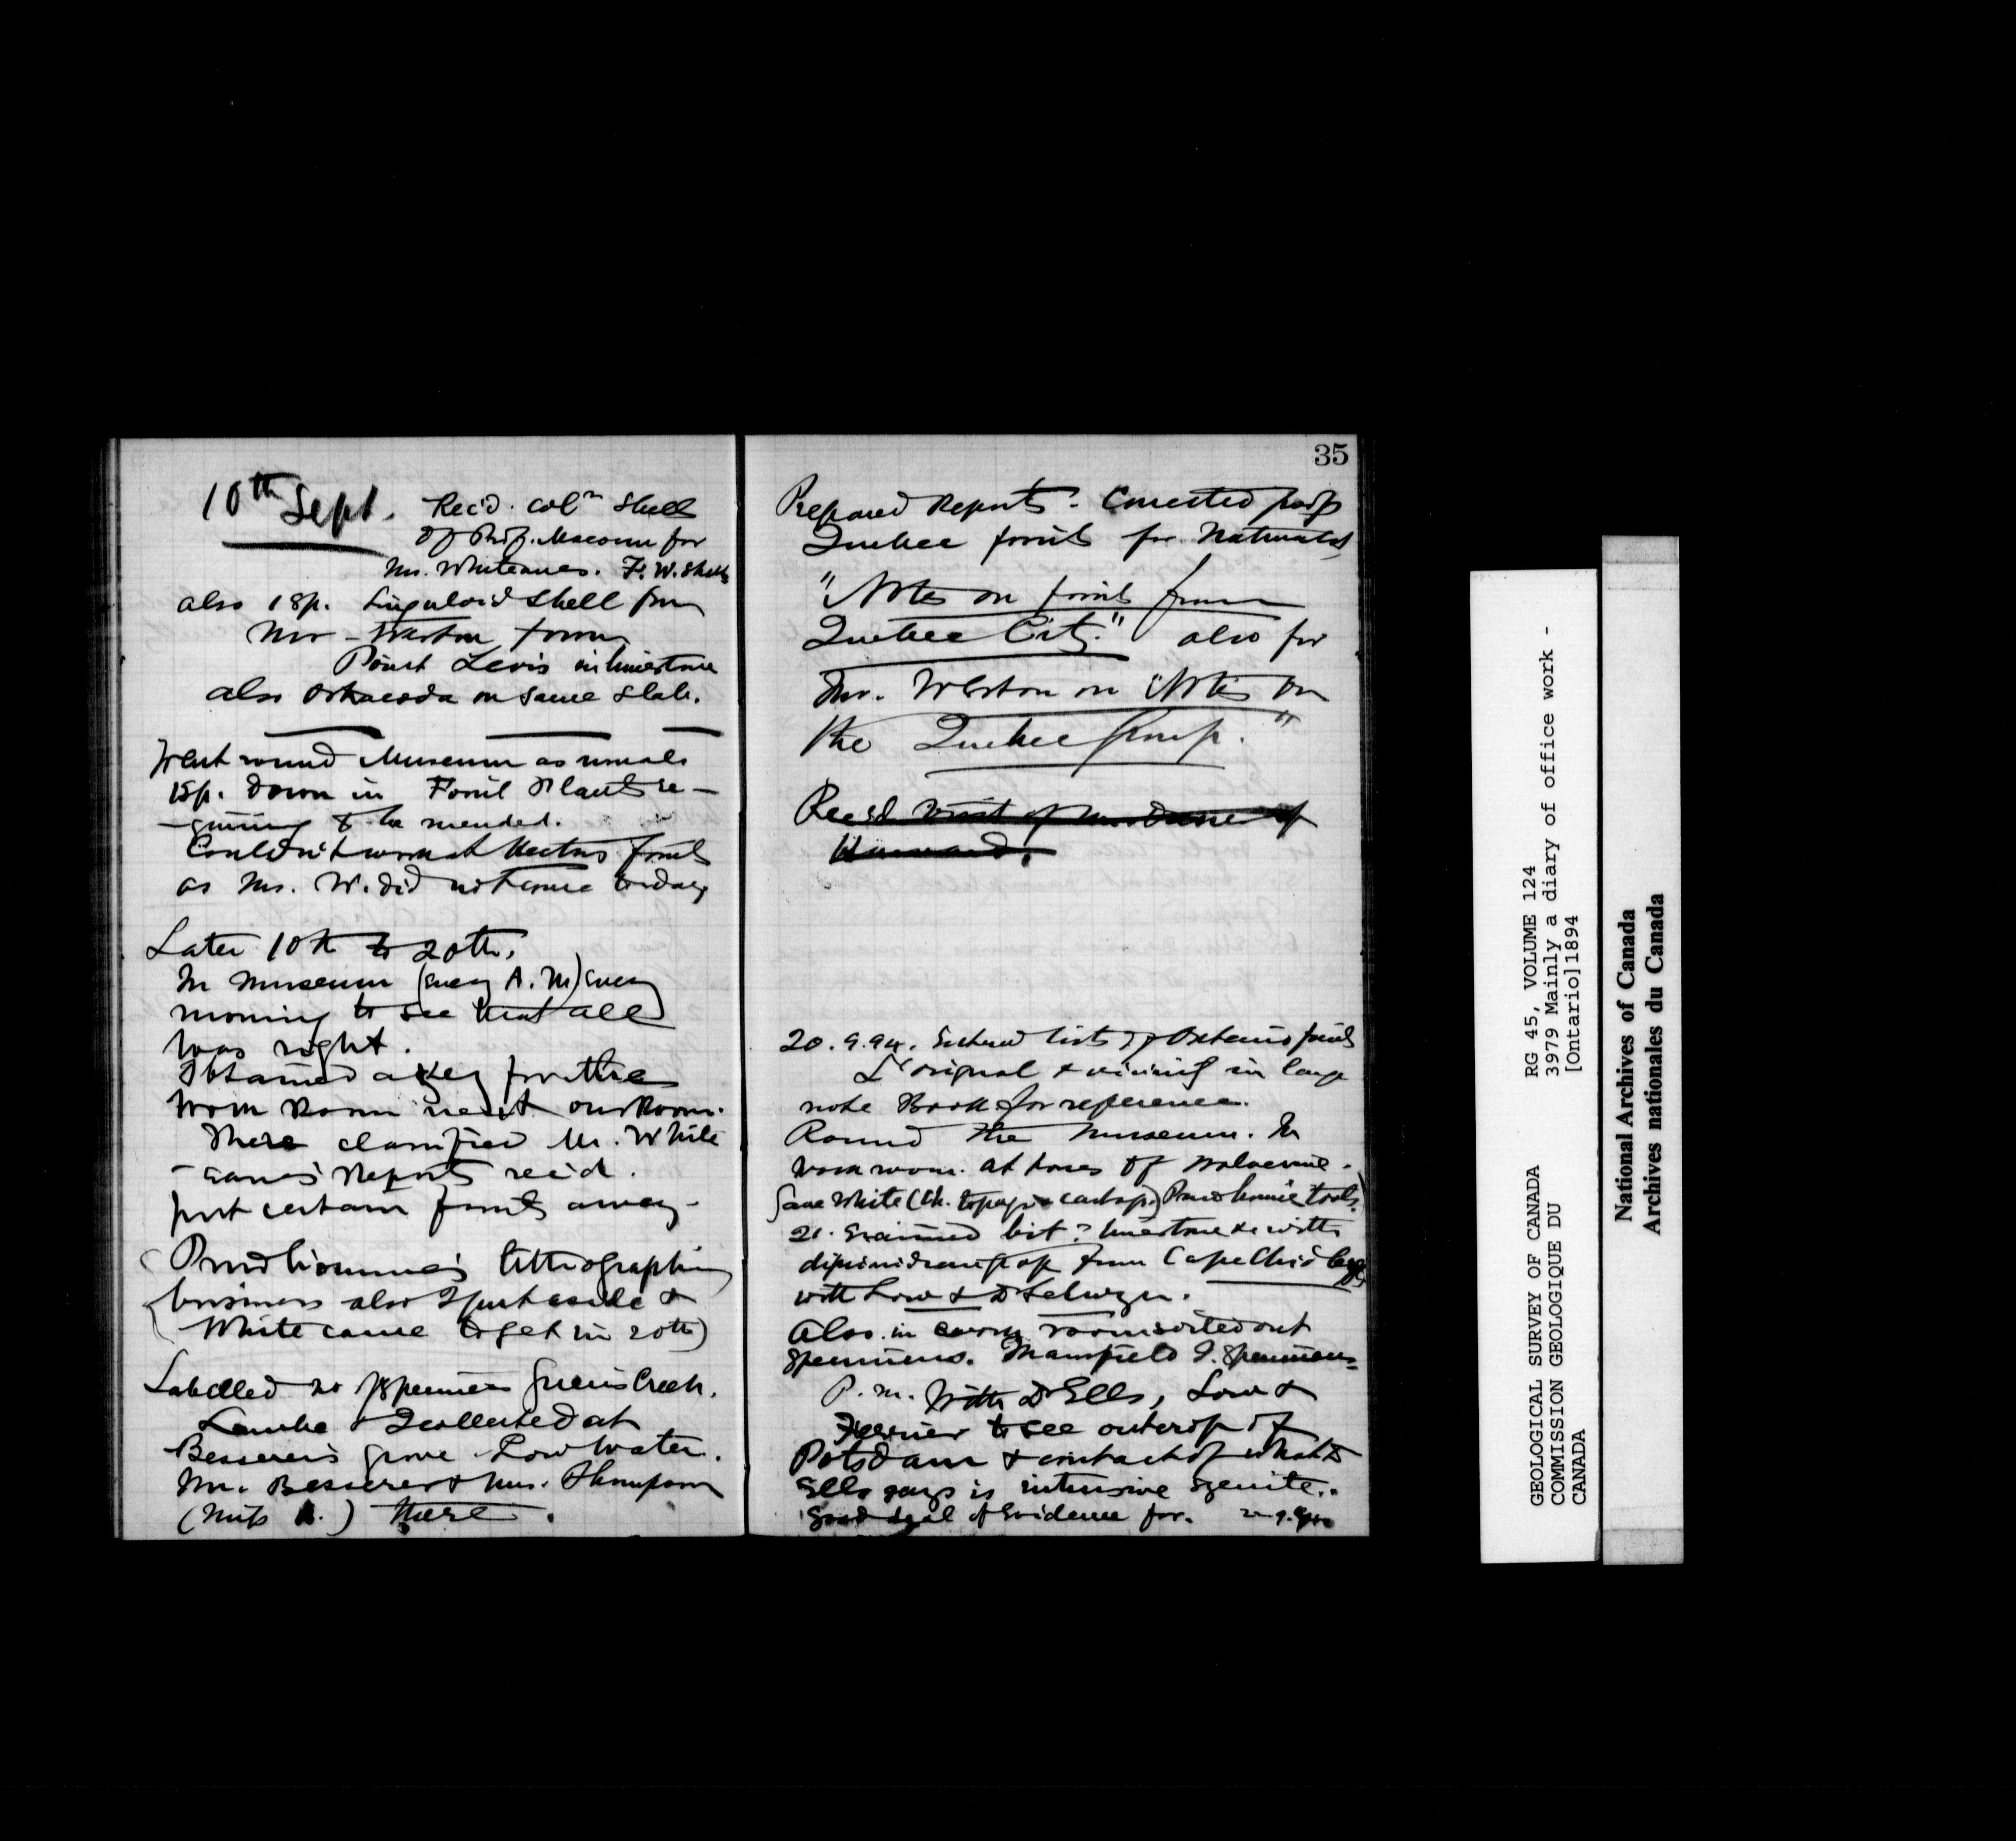 10th Sept. Rec'd. coln Shells
of Prof. Macoun for
Mr. Whiteaves. F. W. Shells
also 1 sp. Linguloid shell from
Mr Weston from
Point Levis in limestone
also Ostracoda on same slab.
Went round Museum as usual
1 sp. down in Fossil Plants re-
-quiring to be mended.
Couldn't work at Hector fossils
as Mr. W. did not come today
Later 10th to 20th.
In museum (every A.M) every
morning to see that all
was right.
Obtained a key for the
work room next our Room.
There classified Mr. White
-eaves' Reports rec'd.
put certain fossils away-
(Prudhomme's lithographing
business also I put aside &
White came to get in 20th)
Labelled specimens Green's Creek.
Lambe & I collected at
Besserer's grove Low Water.
Mr. Besserer & Mrs. Thompson
(Miss) there.
35
Prepared Reports. Corrected proofs
Quebec fossils for Naturalist
"Notes on fossils from
Quebec City." also for
Mr. Weston on "Notes on
the Quebec Group."
Rec'd visit of of
20.9.94. Entered lists of fossils
L'Orignal & vicinity in large
note Book for reference.
Round the Museum. In
work room. at bones of wolverine.
Gave White (Ch. topogr.) Prudhomme tools.
21. Examined bit? limestone with
from Cape Chid
with Low & Dr Selwyn.
Also in work room sorted out
specimens. Mansfield specimens
P.m. With Dr Ells, Low &
Ferrier to see outcrop of
Potsdam & contact of what Dr
Ells says is intrusive syenite.
Good deal of Evidence for.
GEOLOGICAL SURVEY OF CANADA
COMMISSION GEOLOGIQUE DU
CANADA
RG 45, VOLUME 124
3979 Mainly a diary of office work -
[Ontario]1894
National Archives of Canada
Archives nationales du Canada